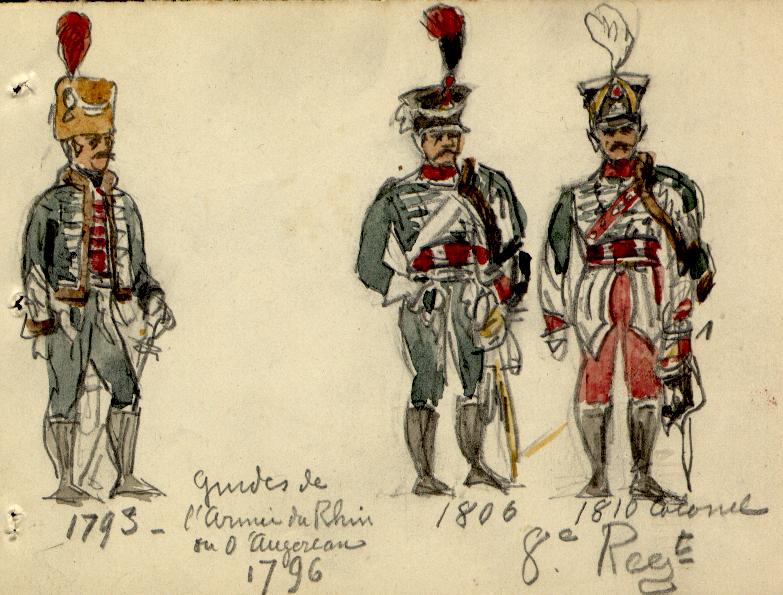 1793 -
Guides de
l'Armée du Rhin
ou d'Augereau
1796
1806
1810 Colonel
8e Regt